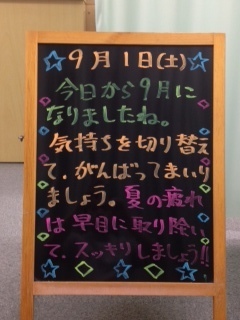 9月1日(土)
今日から9月に
なりましたね。
気持ちを切り替え
て、がんばってまいり
ましょう。夏の疲れ
は早目に取り除い
て、スッキリしましょう!!